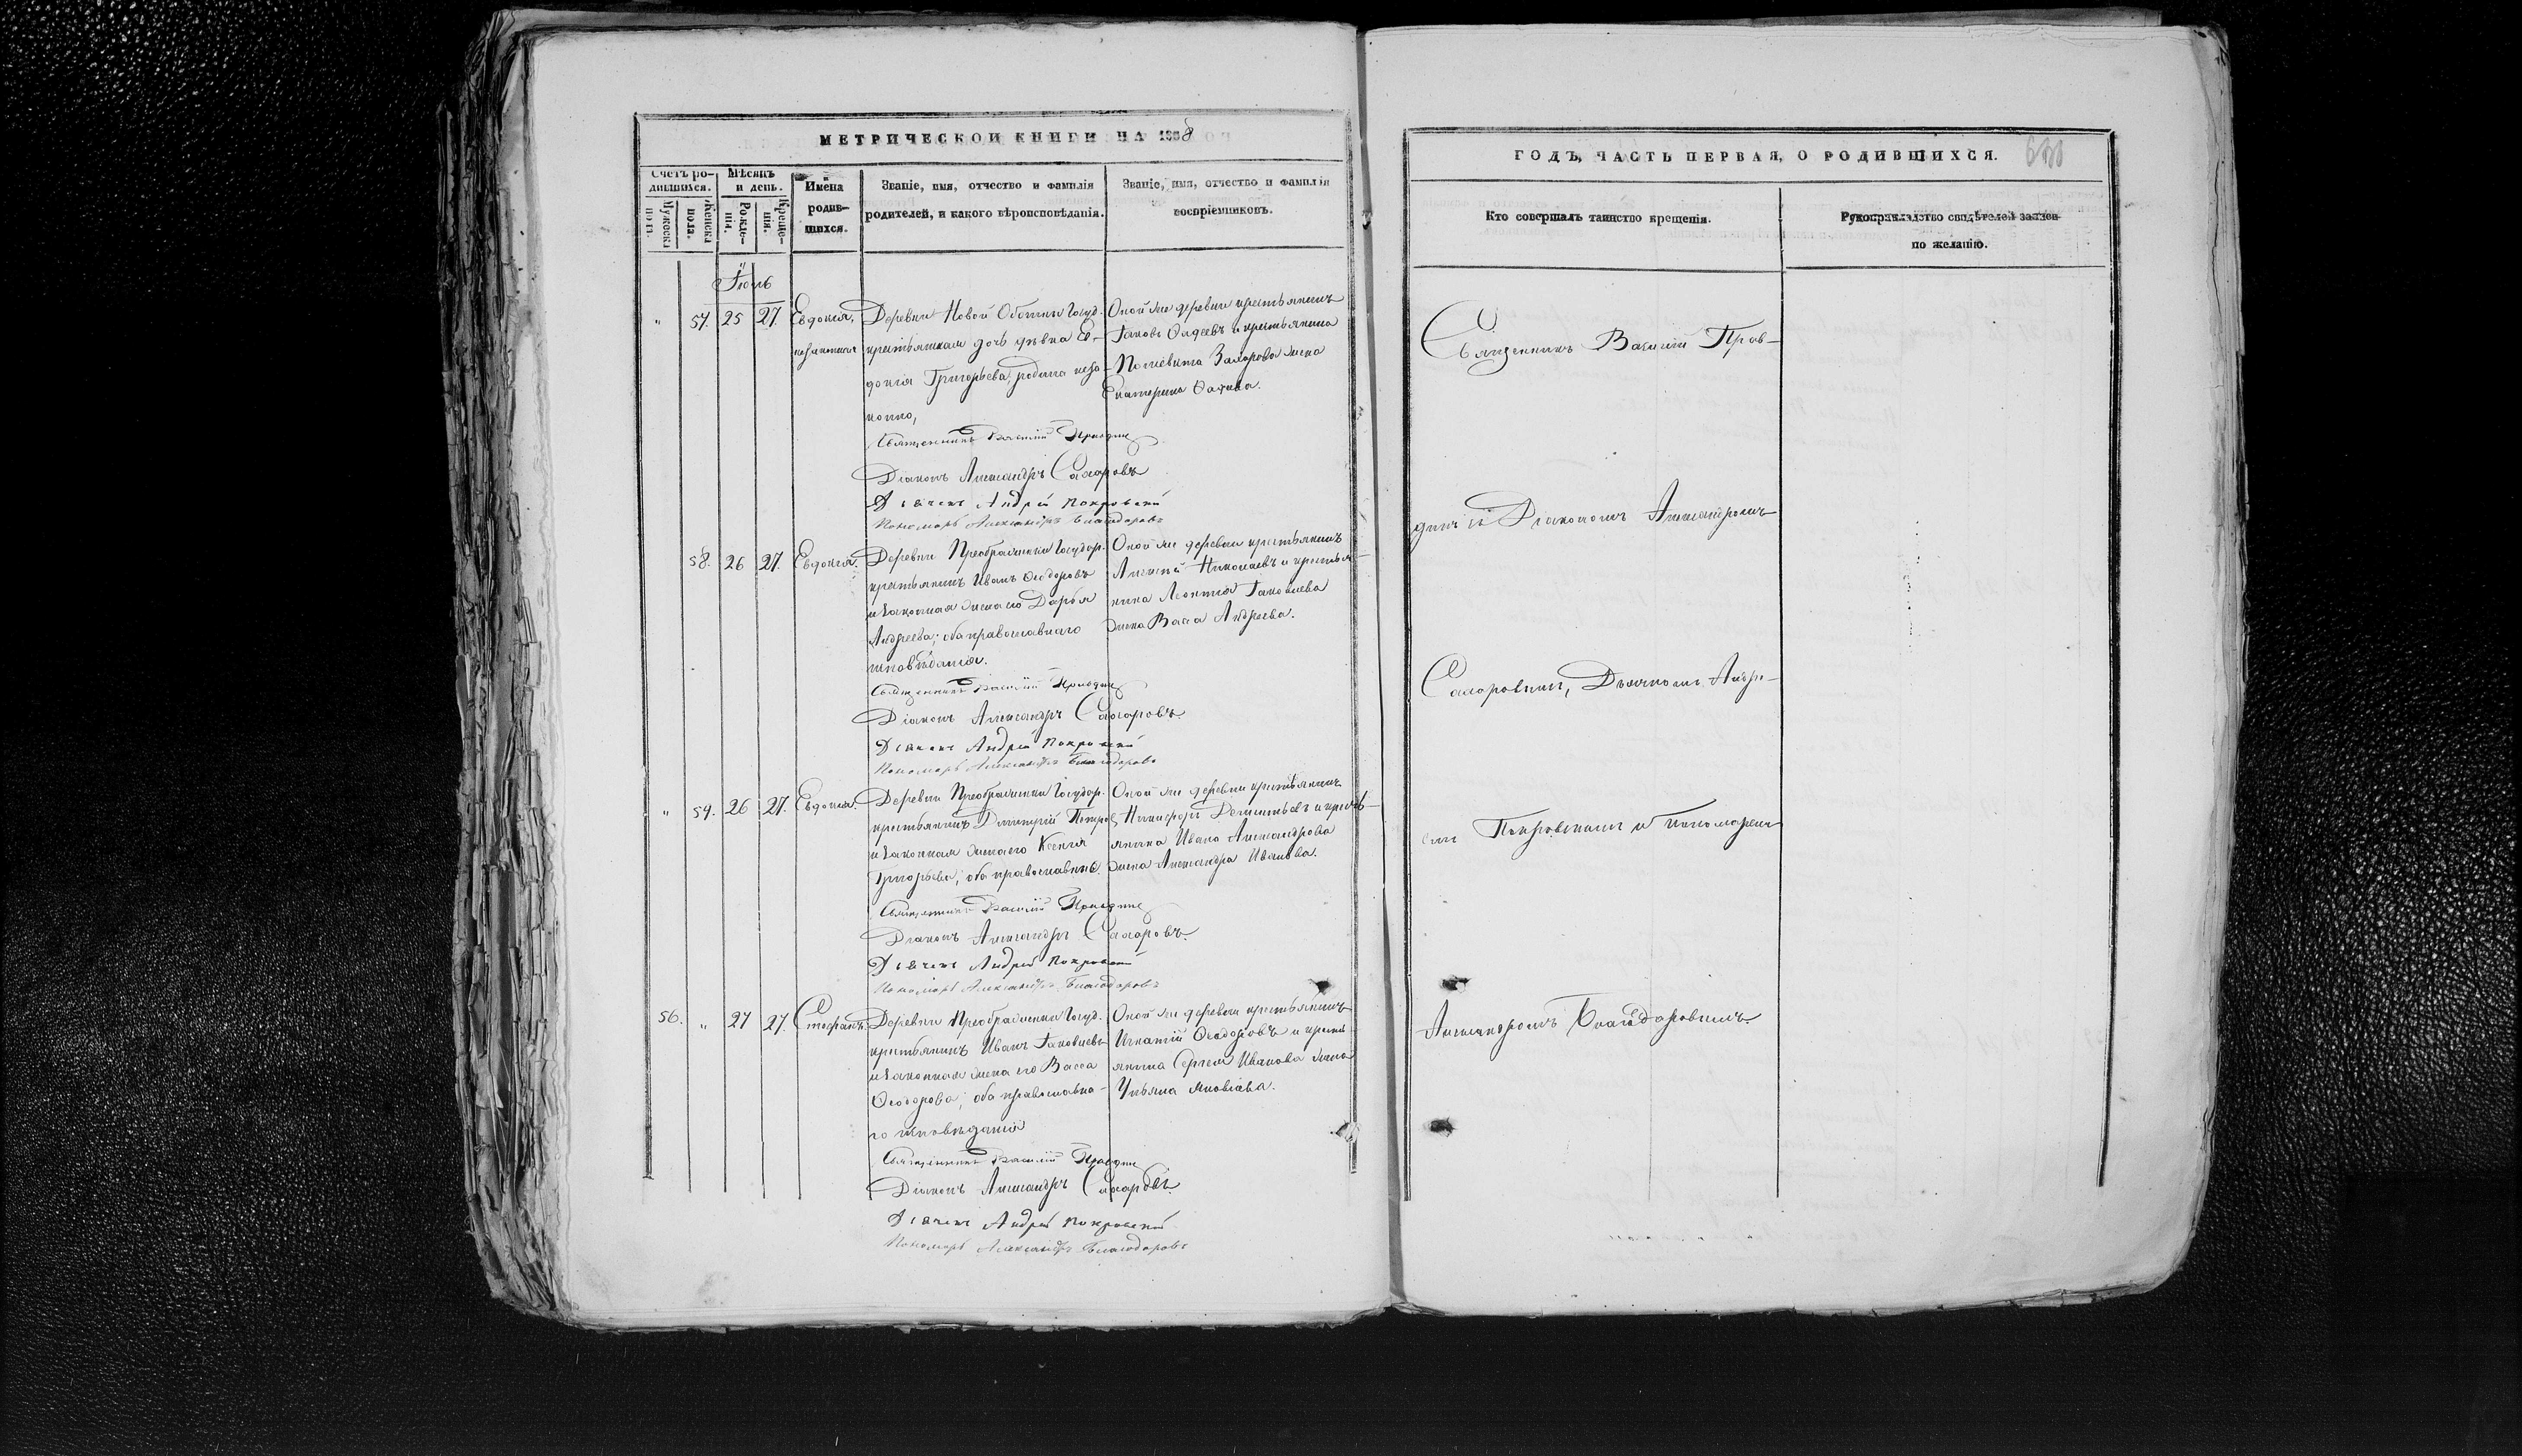 МЕТРИЧЕСКОЙ КНИГИ НА 1858
Счетъ ро-
дившихся.
Мужеска
пола.
Женска
пола.
Мѣсяцъ
и день.
Рожде-
нія.
Креще-
нія.
Имена
родив-
шихся.
Званіе, имя, отчество и фамилія
родителей, и какого вѣроисповѣданія.
Званіе, имя, отчество и фамилія
воспріемниковъ.
Іюль
" 57. 25 27. Евдокія,
незаконная
Деревни Новой Госуд.
крестьянская дочь дѣвка Ев-
докія Григорьева, родила неза-
конно,
Оной же деревни крестьянинъ
Іаковъ и крестьянина
Захарова жена
Екатерина
Священникъ Василій Правдинъ
Діаконъ Александръ Сахаровъ
Дьячекъ Андрей Покровскій
Пономарь Александръ Благодаровъ
58. 26 27. Евдокія.
Деревни Преображенки Государ.
крестьянинъ Иванъ Ѳеодоровъ
и законная жена его Дарья
Андреева; оба православнаго
исповѣданія.
Оной же деревни крестьянинъ
Алексѣй Николаевъ и крестья-
нина Леонтія Іаковлева
жена Васса Андреева.
Священникъ Василій Правдинъ
Діаконъ Александръ Сахаровъ.
Дьячекъ Андрей Покровскій
Пономарь Александръ Благодаровъ
" 59. 26 27. Евдокія.
Деревни Преображенки Государ.
крестьянинъ Димитрій Петровъ
и законная жена его Ксенія
Григорьева; оба православные.
Оной же деревни крестьянинъ
Никифоръ Дементьевъ и кресть-
янина Ивана Александрова
жена Александра Иванова.
Священникъ Василій Правдинъ
Діаконъ Александръ Сахаровъ.
Дьячекъ Андрей Покровскій
Пономарь Александръ Благодаровъ
56. " 27 27. Стефанъ.
Деревни Преображенки Госуд.
крестьянинъ Иванъ Іаковлевъ
и законная жена его Васса
Ѳеодорова; оба православна-
го исповѣданія
Оной же деревни крестьянинъ
Игнатій Ѳеодоровъ и кресть-
янина Сергея Иванова жена
Ульяна Яковлева.
Священникъ Василій Правдинъ
Діаконъ Александръ Сахаровъ.
Дьячекъ Андрей Покровскій
Пономарь Александръ Благодаровъ
ГОДЪ, ЧАСТЬ ПЕРВАЯ, О РОДИВШИХСЯ.
Кто совершалъ таинство крещенія.
Рукоприкладство свидѣтелей записи
по желанію.
Священникъ Василій Прав-
динъ съ Діакономъ Александромъ
Сахаровымъ, Дьячкомъ Андре-
емъ Покровскимъ и пономаремъ
Александромъ Благодаровымъ.